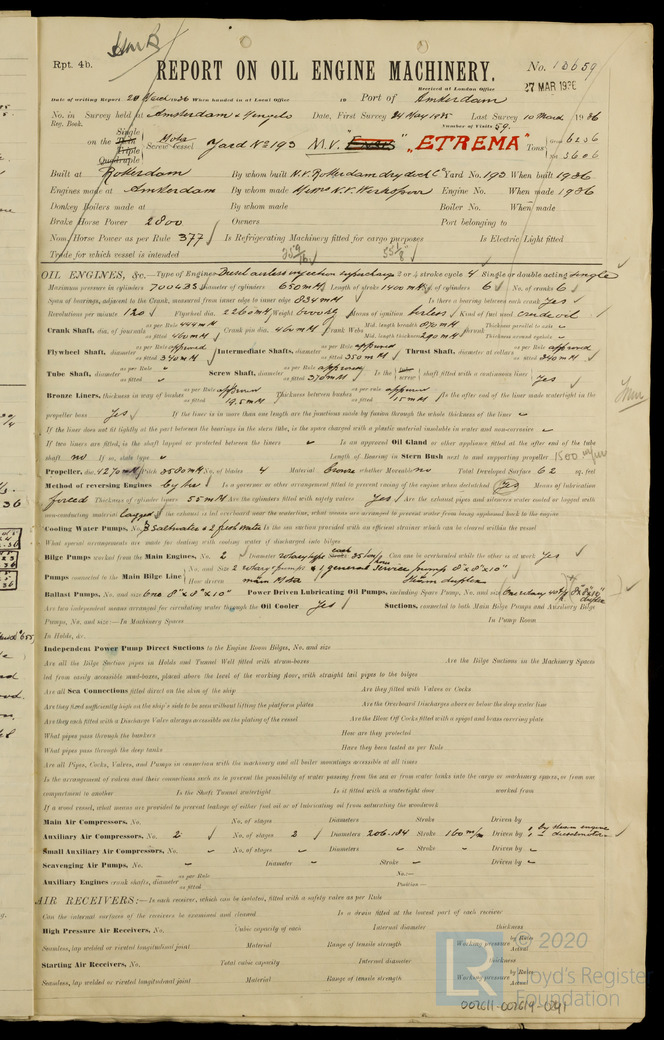 Rpt. 4b.
REPORT ON OIL ENGINE MACHINERY.
No.
Received at London Office
27 MAR 1936
Date of writing Report 20 March 1936 When handed in at Local Office 19 Port of Amsterdam
No. in Reg. Book. Survey held at Amsterdam & Hengelo Date, First Survey 24 May 1935 Last Survey 10 March 1936
Number of Visits 59.
on the Single Twin Triple Quadruple Screw vessel Motor Yard No 2193 M.V. "ETREMA" Tons Gross 6236 Net 3606
Built at Rotterdam By whom built N.V. Rotterdam drydock Co Yard No. 193 When built 1936
Engines made at Amsterdam By whom made Messrs N.V. Werkspoor Engine No. When made 1936
Donkey Boilers made at By whom made Boiler No. When made
Brake Horse Power 2800 Owners Port belonging to
Nom. Horse Power as per Rule 377 Is Refrigerating Machinery fitted for cargo purposes Is Electric Light fitted
Trade for which vessel is intended
OIL ENGINES, &c.—Type of Engines Diesel airless injection supercharge 2 or 4 stroke cycle 4 Single or double acting Single
Maximum pressure in cylinders Diameter of cylinders 650 mM Length of stroke 1400 mM No. of cylinders 6 No. of cranks 6
Span of bearings, adjacent to the Crank, measured from inner edge to inner edge 834 mM Is there a bearing between each crank Yes
Revolutions per minute 120 Flywheel dia. 2260 mM Weight Means of ignition airless Kind of fuel used crude oil
Crank Shaft, dia. of journals as per Rule 444 mM as fitted 460 mM Crank pin dia. 460 mM Crank Webs Mid. length breadth 870 mM Mid. length thickness 290 mM shrunk Thickness parallel to axis Thickness around eyehole
Flywheel Shaft, diameter as per Rule approved as fitted 340 mM Intermediate Shafts, diameter as per Rule approved as fitted 350 mM Thrust Shaft, diameter at collars as per Rule approved as fitted 340 mM
Tube Shaft, diameter as per Rule as fitted Screw Shaft, diameter as per Rule approved as fitted 370 mM Is the tube screw shaft fitted with a continuous liner Yes
Bronze Liners, thickness in way of bushes as per Rule approved as fitted 19.5 mM Thickness between bushes as per rule approved as fitted 15 mM Is the after end of the liner made watertight in the
propeller boss Yes If the liner is in more than one length are the junctions made by fusion through the whole thickness of the liner
If the liner does not fit tightly at the part between the bearings in the stern tube, is the space charged with a plastic material insoluble in water and non-corrosive
If two liners are fitted, is the shaft lapped or protected between the liners Is an approved Oil Gland or other appliance fitted at the after end of the tube
shaft no If so, state type Length of Bearing in Stern Bush next to and supporting propeller 1500 m/m
Propeller, dia. 4270 mM Pitch 3580 mM No. of blades 4 Material bronze whether Moveable no Total Developed Surface 62 sq. feet
Method of reversing Engines by air Is a governor or other arrangement fitted to prevent racing of the engine when declutched Yes Means of lubrication
forced Thickness of cylinder liners 55 mM Are the cylinders fitted with safety valves Yes Are the exhaust pipes and silencers water cooled or lagged with
non-conducting material lagged If the exhaust is led overboard near the waterline, what means are arranged to prevent water from being syphoned back to the engine
Cooling Water Pumps, No. 3 saltwater & 2 fresh water Is the sea suction provided with an efficient strainer which can be cleared within the vessel
What special arrangements are made for dealing with cooling water if discharged into bilges
Bilge Pumps worked from the Main Engines, No. 2 Diameter rotary type Stroke each 35 ton/hour Can one be overhauled while the other is at work Yes
Pumps connected to the Main Bilge Line No. and Size 2 rotary pumps & 1 general service pump 8"x8"x10" How driven main Motor Steam duplex
Ballast Pumps, No. and size One 8"x8"x10" Power Driven Lubricating Oil Pumps, including Spare Pump, No. and size One rotary 8"x8"x10" duplex
Are two independent means arranged for circulating water through the Oil Cooler Yes Suctions, connected to both Main Bilge Pumps and Auxiliary Bilge
Pumps, No. and size:—In Machinery Spaces In Pump Room
In Holds, &c.
Independent Power Pump Direct Suctions to the Engine Room Bilges, No. and size
Are all the Bilge Suction pipes in Holds and Tunnel Well fitted with strum-boxes Are the Bilge Suctions in the Machinery Spaces
led from easily accessible mud-boxes, placed above the level of the working floor, with straight tail pipes to the bilges
Are all Sea Connections fitted direct on the skin of the ship Are they fitted with Valves or Cocks
Are they fixed sufficiently high on the ship's side to be seen without lifting the platform plates Are the Overboard Discharges above or below the deep water line
Are they each fitted with a Discharge Valve always accessible on the plating of the vessel Are the Blow Off Cocks fitted with a spigot and brass covering plate
What pipes pass through the bunkers How are they protected
What pipes pass through the deep tanks Have they been tested as per Rule
Are all Pipes, Cocks, Valves, and Pumps in connection with the machinery and all boiler mountings accessible at all times
Is the arrangement of valves and their connections such as to prevent the possibility of water passing from the sea or from water tanks into the cargo or machinery spaces, or from one
compartment to another Is the Shaft Tunnel watertight Is it fitted with a watertight door worked from
If a wood vessel, what means are provided to prevent leakage of either fuel oil or of lubricating oil from saturating the woodwork
Main Air Compressors, No. No. of stages Diameters Stroke Driven by
Auxiliary Air Compressors, No. 2 No. of stages 2 Diameters 206-184 Stroke 160 m/m Driven by 1 by steam engine 1 dieselmotor
Small Auxiliary Air Compressors, No. No. of stages Diameters Stroke Driven by
Scavenging Air Pumps, No. Diameter Stroke Driven by
Auxiliary Engines crank shafts, diameter as per Rule as fitted No.:— Position:—
AIR RECEIVERS:—Is each receiver, which can be isolated, fitted with a safety valve as per Rule
Can the internal surfaces of the receivers be examined and cleaned Is a drain fitted at the lowest part of each receiver
High Pressure Air Receivers, No. Cubic capacity of each Internal diameter thickness
Seamless, lap welded or riveted longitudinal joint Material Range of tensile strength Working pressure by Rules Actual
Starting Air Receivers, No. Total cubic capacity Internal diameter thickness
Seamless, lap welded or riveted longitudinal joint Material Range of tensile strength Working pressure by Rules Actual
© 2020
Lloyd's Register
Foundation
002611-002619-0241